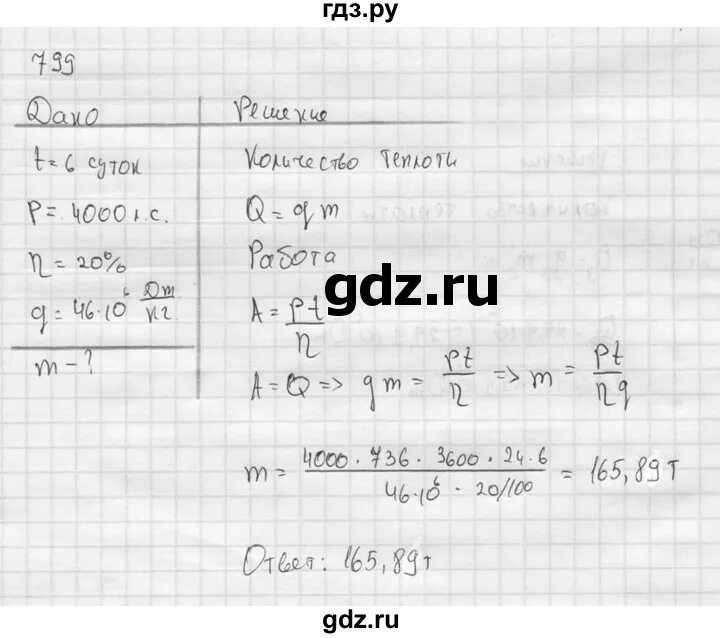 гдз.ру
799
Дано
t = 6 суток
P = 4000 л.с.
η = 20%
q = 46·10⁶ Дж/кг
m - ?
Решение
Количество теплоты
Q = q m
Работа
A = Pt/η
A = Q => q m = Pt/η => m = Pt/ηq
m = 4000 · 736 · 3600 · 24 · 6 / 46·10⁶ · 20/100 = 165,89 т
Ответ: 165,89 т
gdz.ru
gdz.ru